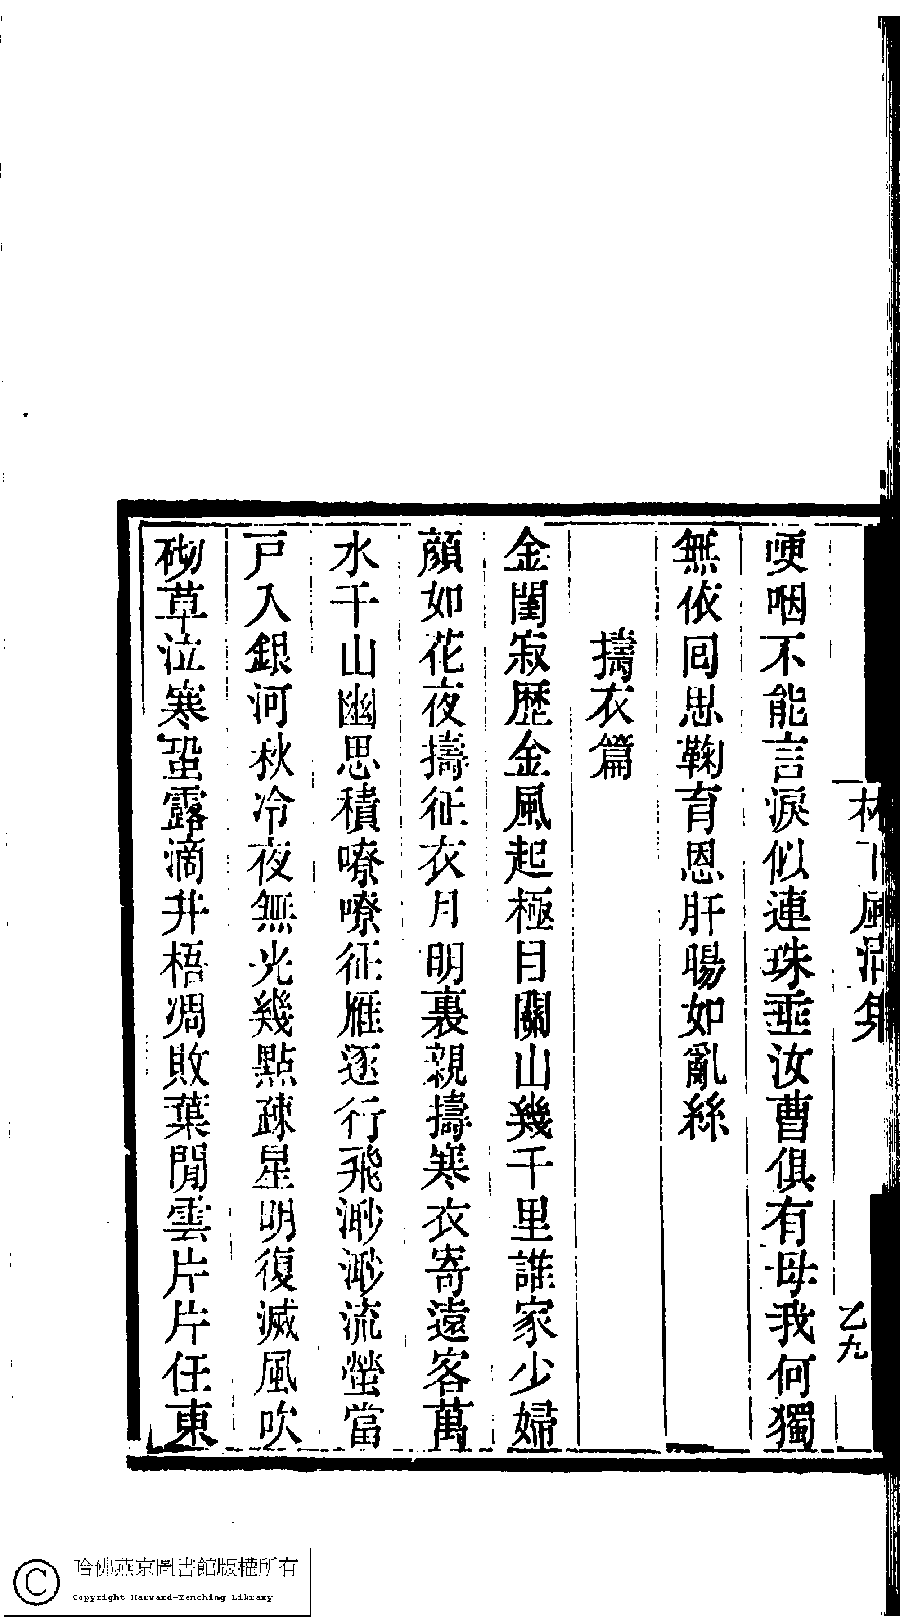 林下風清集
乙九
哽咽不能言淚似連珠垂汝曹俱有母我何獨
無依囘思鞠育恩肝腸如亂絲
擣衣篇
金閨寂歷金風起極目關山幾千里誰家少婦
顔如花夜擣征衣月明裏親擣寒衣寄遠客萬
水千山幽思積嘹嘹征雁逐行飛渺渺流螢當
戸入銀河秋冷夜無光幾點疎星明復滅風吹
砌草泣寒蛩露滴井梧凋敗葉閒雲片片任東
哈佛燕京圖書館版權所有
Copyright Harvard-Yenching Library